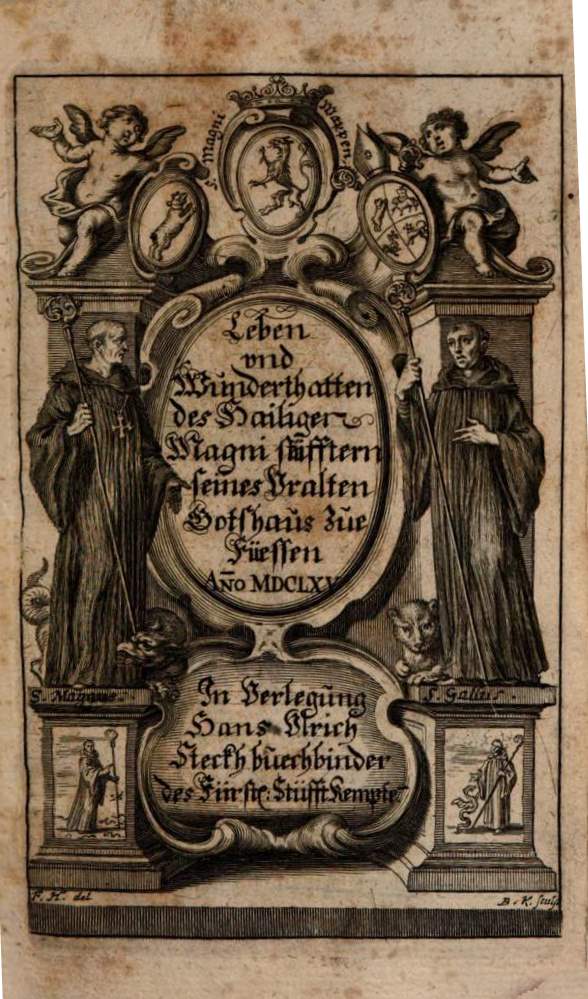 S. Magni Wappen
Leben
vnd
Wunderthatten
des Hailigen
Magni stüfftern
seines Vralten
Gotshaus Zue
Füessen
Año MDCLXV
S. Magnus.
S. Gallus.
In Verlegung
Hans Vlrich
Steckh buechbinder
des Fürstl: Stüfft Kempte
F. H. del
B. K. sculp